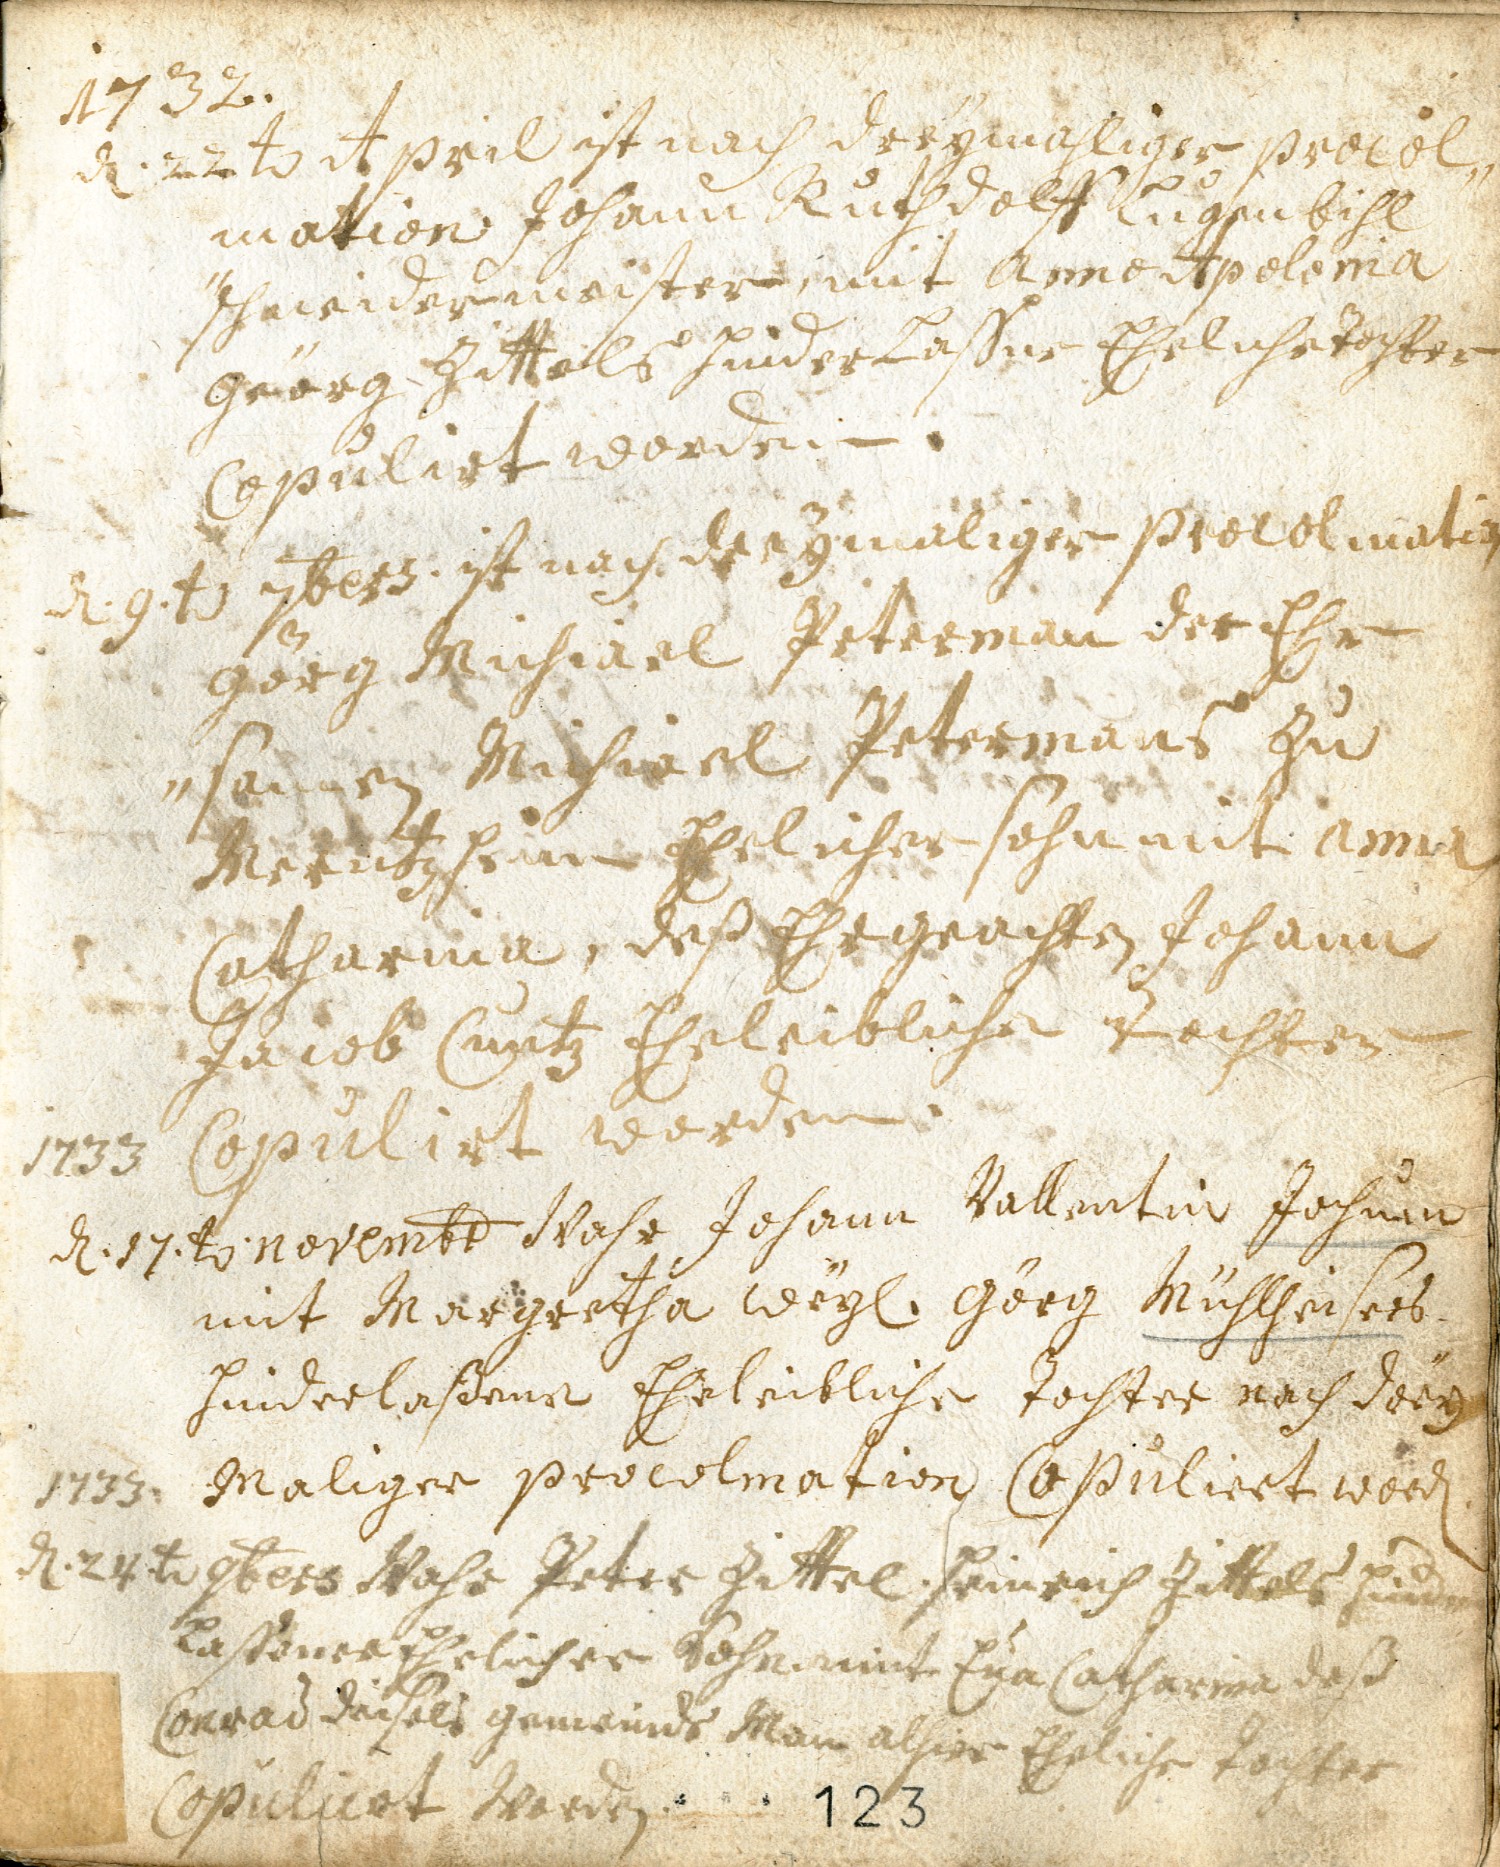 1732.
d. 22t April ist nach dreÿmahliger procol„
mation Johann Ruthdolff Lugenbihl
Schneidermeister, mit Anna Apolonia
Geörg Zittels hinderLassne Ehelichetochter
Copulirt worden.
d. 9.t 7bers. ist nach dreÿmaliger procolmation
Görg Michael Peterman der Ehr
„samen Michael Petermans Zu
Mertzheim Ehelicher sohn mit anna
Catharina, deß Ehrgeachten Johann
Jacob Cuntz Eheleibliche Tochter
1733 Copulirt worden.
d. 17.t. novembr Wahr Johann Vallentin Jochum
mit Margretha weÿl. Görg Mühlheisers
hinderlaßene Eheleibliche tochter nach dreÿ
1733. Maliger procolmation Copuliert word.
d. 24.t 9bers Wahr Peter Zittel Heinrich Zittels hinder
Lassener Ehelicher Sohn mit Eva Catharina deß
Conrad deisels gemeinds Man alhier Eheliche tochter
Copulirt Worden.
123